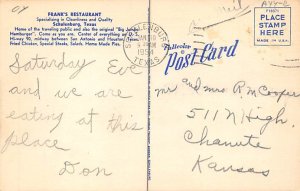 FRANK'S RESTAURANT
Specializing in Cleanliness and Quality
Schulenburg, Texas
Home of the traveling public and also the original "Big
Hamburger". Come as you are. Center of everything on U. S.
Hi-way 90, midway between San Antonio and Houston, Texas.
Fried Chicken, Special Steaks, Salads. Home Made Pies.
Saturday Eve
and we are
eating at this
place
Don
1954
TEXAS
Post Card
PLACE
STAMP
HERE
MADE IN U.S.A.
Mr and Mrs R M Cooper
511 N High,
Chanute
Kansas